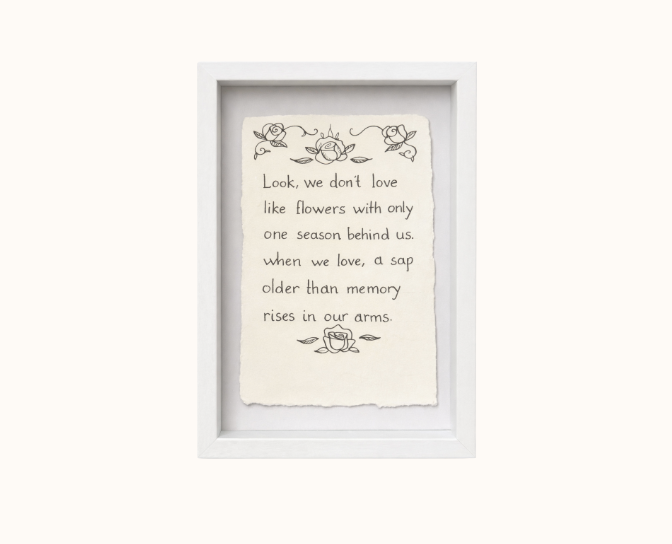 Look, we don't love
like flowers with only
one season behind us.
when we love, a sap
older than memory
rises in our arms.